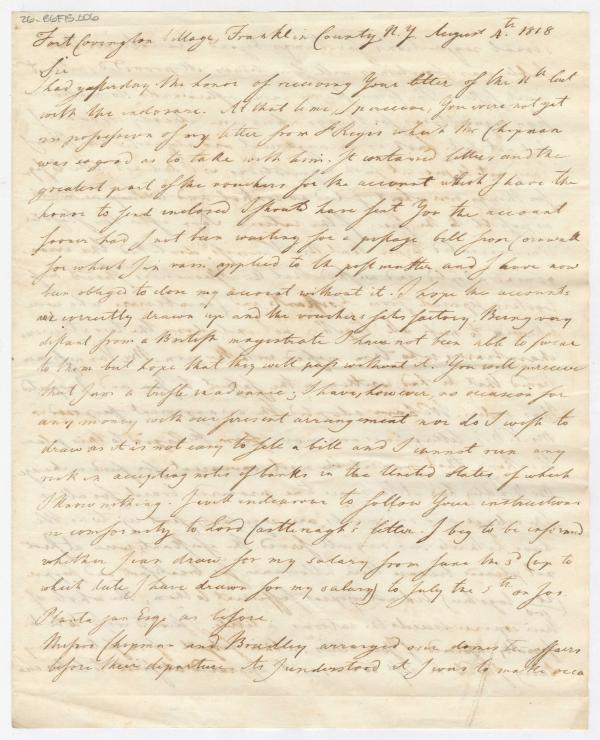 26-B6F15.006
Fort Covington Village, Franklin County N.Y. August 4th 1818
Sir
I had yesterday the honor of receiving Your letter of the 11th Cut
with the inclosure. At that time, I perceive, You were not yet
in possession of my letter from St Regis which Mr Chipman
was so good as to take with him. It contained letters and the
greatest part of the vouchers for the account which I have the
honor to send inclosed. I should have sent You the account
sooner had I not been waiting for a postage bill from Cornwall
for which I in vain applied to the post master and I have now
been obliged to close my account without it. I hope the accounts
are correctly drawn up and the vouchers satisfactory. Being very
distant from a British magistrate I have not been able to swear
to them but hope that they will pass without it. You will perceive
that I am a trifle in advance; I have, however, no occasion for
any money with our present arrangement nor do I wish to
draw as it is not easy to sell a bill and I cannot run any
risk in accepting notes of banks in the United States of which
I know nothing. I will endeavour to follow Your instructions
in conformity to Lord Castlereagh's letter. I beg to be informed
whether I can draw for my salary from June the 3d (up to
which date I have drawn for my salary) to July the 5th on Jos.
Planta jun Esqr as before
Messrs Chipman and Bradley arranged our domestic affairs
before their departure. As I understood it I was to make occa